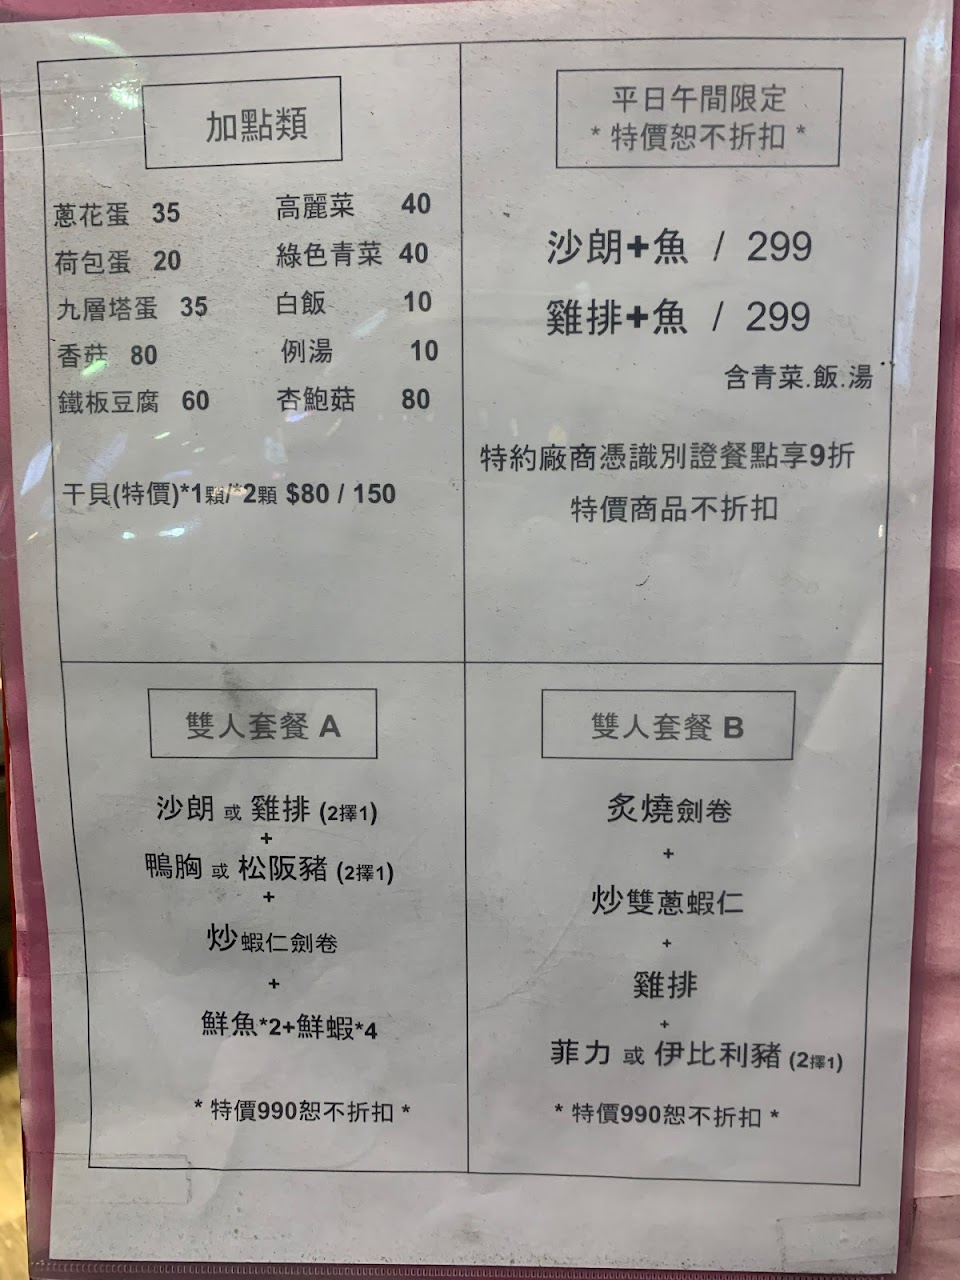 加點類
蔥花蛋 35
荷包蛋 20
九層塔蛋 35
香菇 80
鐵板豆腐 60
高麗菜 40
綠色青菜 40
白飯 10
例湯 10
杏鮑菇 80
干貝(特價)*1顆/*2顆 $80 / 150
平日午間限定
* 特價恕不折扣 *
沙朗+魚 / 299
雞排+魚 / 299
含青菜.飯.湯
特約廠商憑識別證餐點享9折
特價商品不折扣
雙人套餐 A
沙朗 或 雞排 (2擇1)
+
鴨胸 或 松阪豬 (2擇1)
+
炒蝦仁劍卷
+
鮮魚*2+鮮蝦*4
* 特價990恕不折扣 *
雙人套餐 B
炙燒劍卷
+
炒雙蔥蝦仁
+
雞排
+
菲力 或 伊比利豬 (2擇1)
* 特價990恕不折扣 *